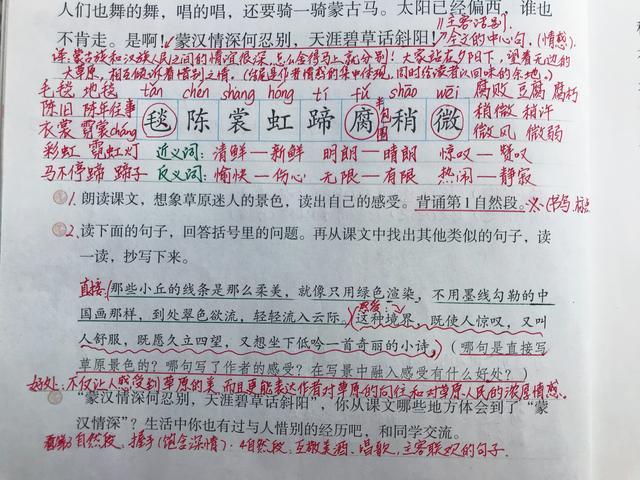 人们也舞的舞，唱的唱，还要骑一骑蒙古马。太阳已经偏西，谁也
不肯走。是啊！蒙汉情深何忍别，天涯碧草话斜阳！
主客话别。
全文的中心句。(情感)
译：蒙古族和汉族人民之间的情谊很深，怎么舍得马上就分别！大家站在夕阳下，望着无边的
大草原，相互倾诉着惜别之情。
毛毯 地毯 tǎn chén shang hóng tí fǔ shāo wēi 腐败 豆腐 腐朽
陈旧 陈年往事 毯 陈 裳 虹 蹄 腐 稍 微 稍微 稍许
半包围
衣裳 霓裳cháng 微风 微弱
彩虹 霓虹灯 近义词：清鲜—新鲜 明朗—晴朗 惊叹—赞叹
马不停蹄 蹄子 反义词：愉快—伤心 无限—有限 热闹—静寂
1.朗读课文，想象草原迷人的景色，读出自己的感受。背诵第1自然段。
2.读下面的句子，回答括号里的问题。再从课文中找出其他类似的句子，读
一读，抄写下来。
直接：那些小丘的线条是那么柔美，就像只用绿色渲染，不用墨线勾勒的中
国画那样，到处翠色欲流，轻轻流入云际。这种境界，既使人惊叹，又叫
感受：
人舒服，既愿久立四望，又想坐下低吟一首奇丽的小诗。(哪句是直接写
草原景色的？哪句写了作者的感受？在写景中融入感受有什么好处？)
好处：不仅让人感受到草原的美，而且更能表达作者对草原的向往和对草原人民的浓厚情感。
“蒙汉情深何忍别，天涯碧草话斜阳”，你从课文哪些地方体会到了“蒙
汉情深”？生活中你也有过与人惜别的经历吧，和同学交流。
3自然段，握手(饱含深情)。4自然段，互敬美酒、唱歌，主客联欢的句子。